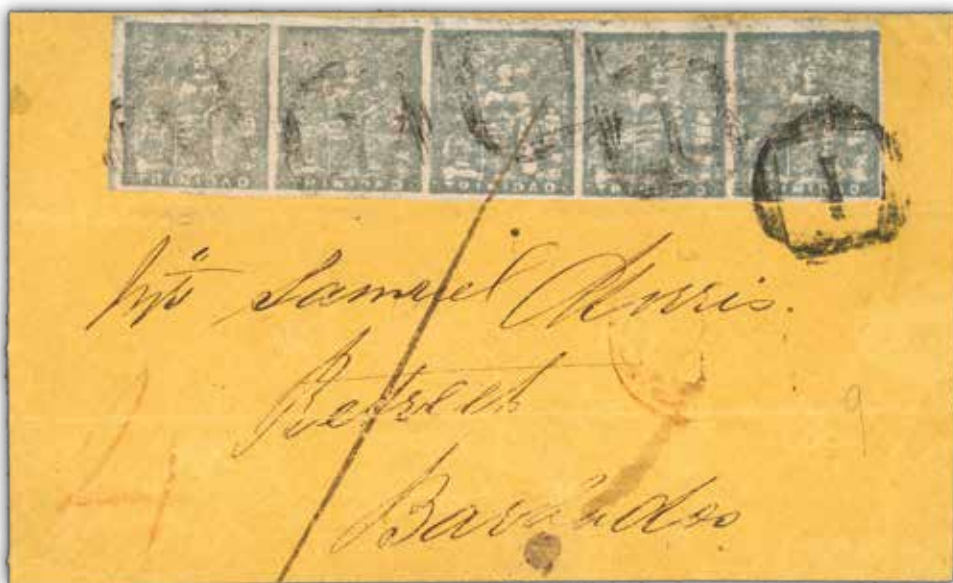 TRINIDAD TRINIDAD TRINIDAD TRINIDAD TRINIDAD
1
Samuel Morris.
Retreat
Barbados
4
9